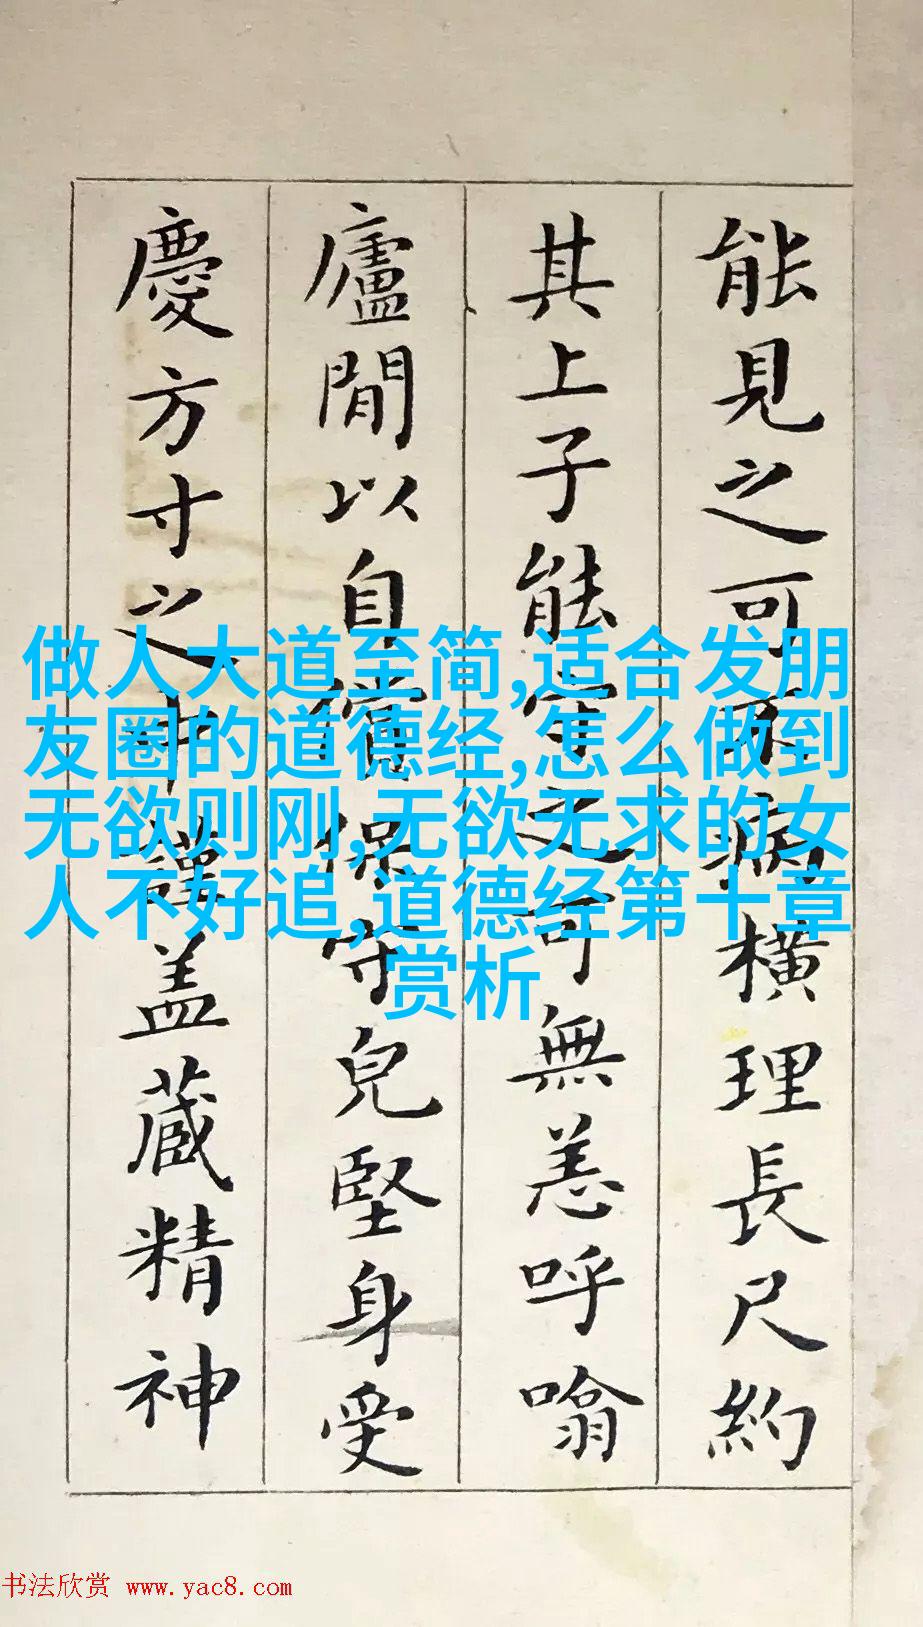 能見之可不病橫理長尺約
其上子能守之可無恙呼噏
廬間以自償保守兒堅身受
慶方寸之中謹盖藏精神
做人大道至简,适合发朋
友圈的道德经,怎么做到
无欲则刚,无欲无求的女
人不好追,道德经第十章
赏析
书法欣赏 www.yac8.com